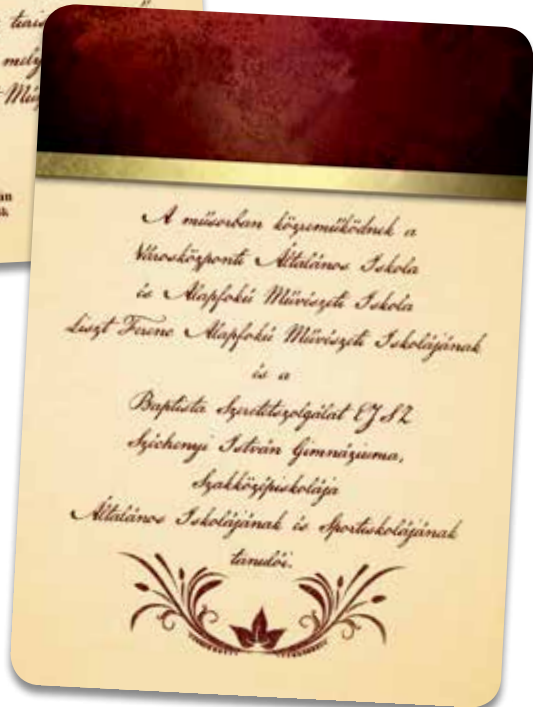 mely
A műsorban közreműködnek a
Városközponti Általános Iskola
és Alapfokú Művészeti Iskola
Liszt Ferenc Alapfokú Művészeti Iskolájának
és a
Baptista Szeretetszolgálat EJSZ
Széchenyi István Gimnáziuma,
Szakközépiskolája
Általános Iskolájának és Sportiskolájának
tanulói.